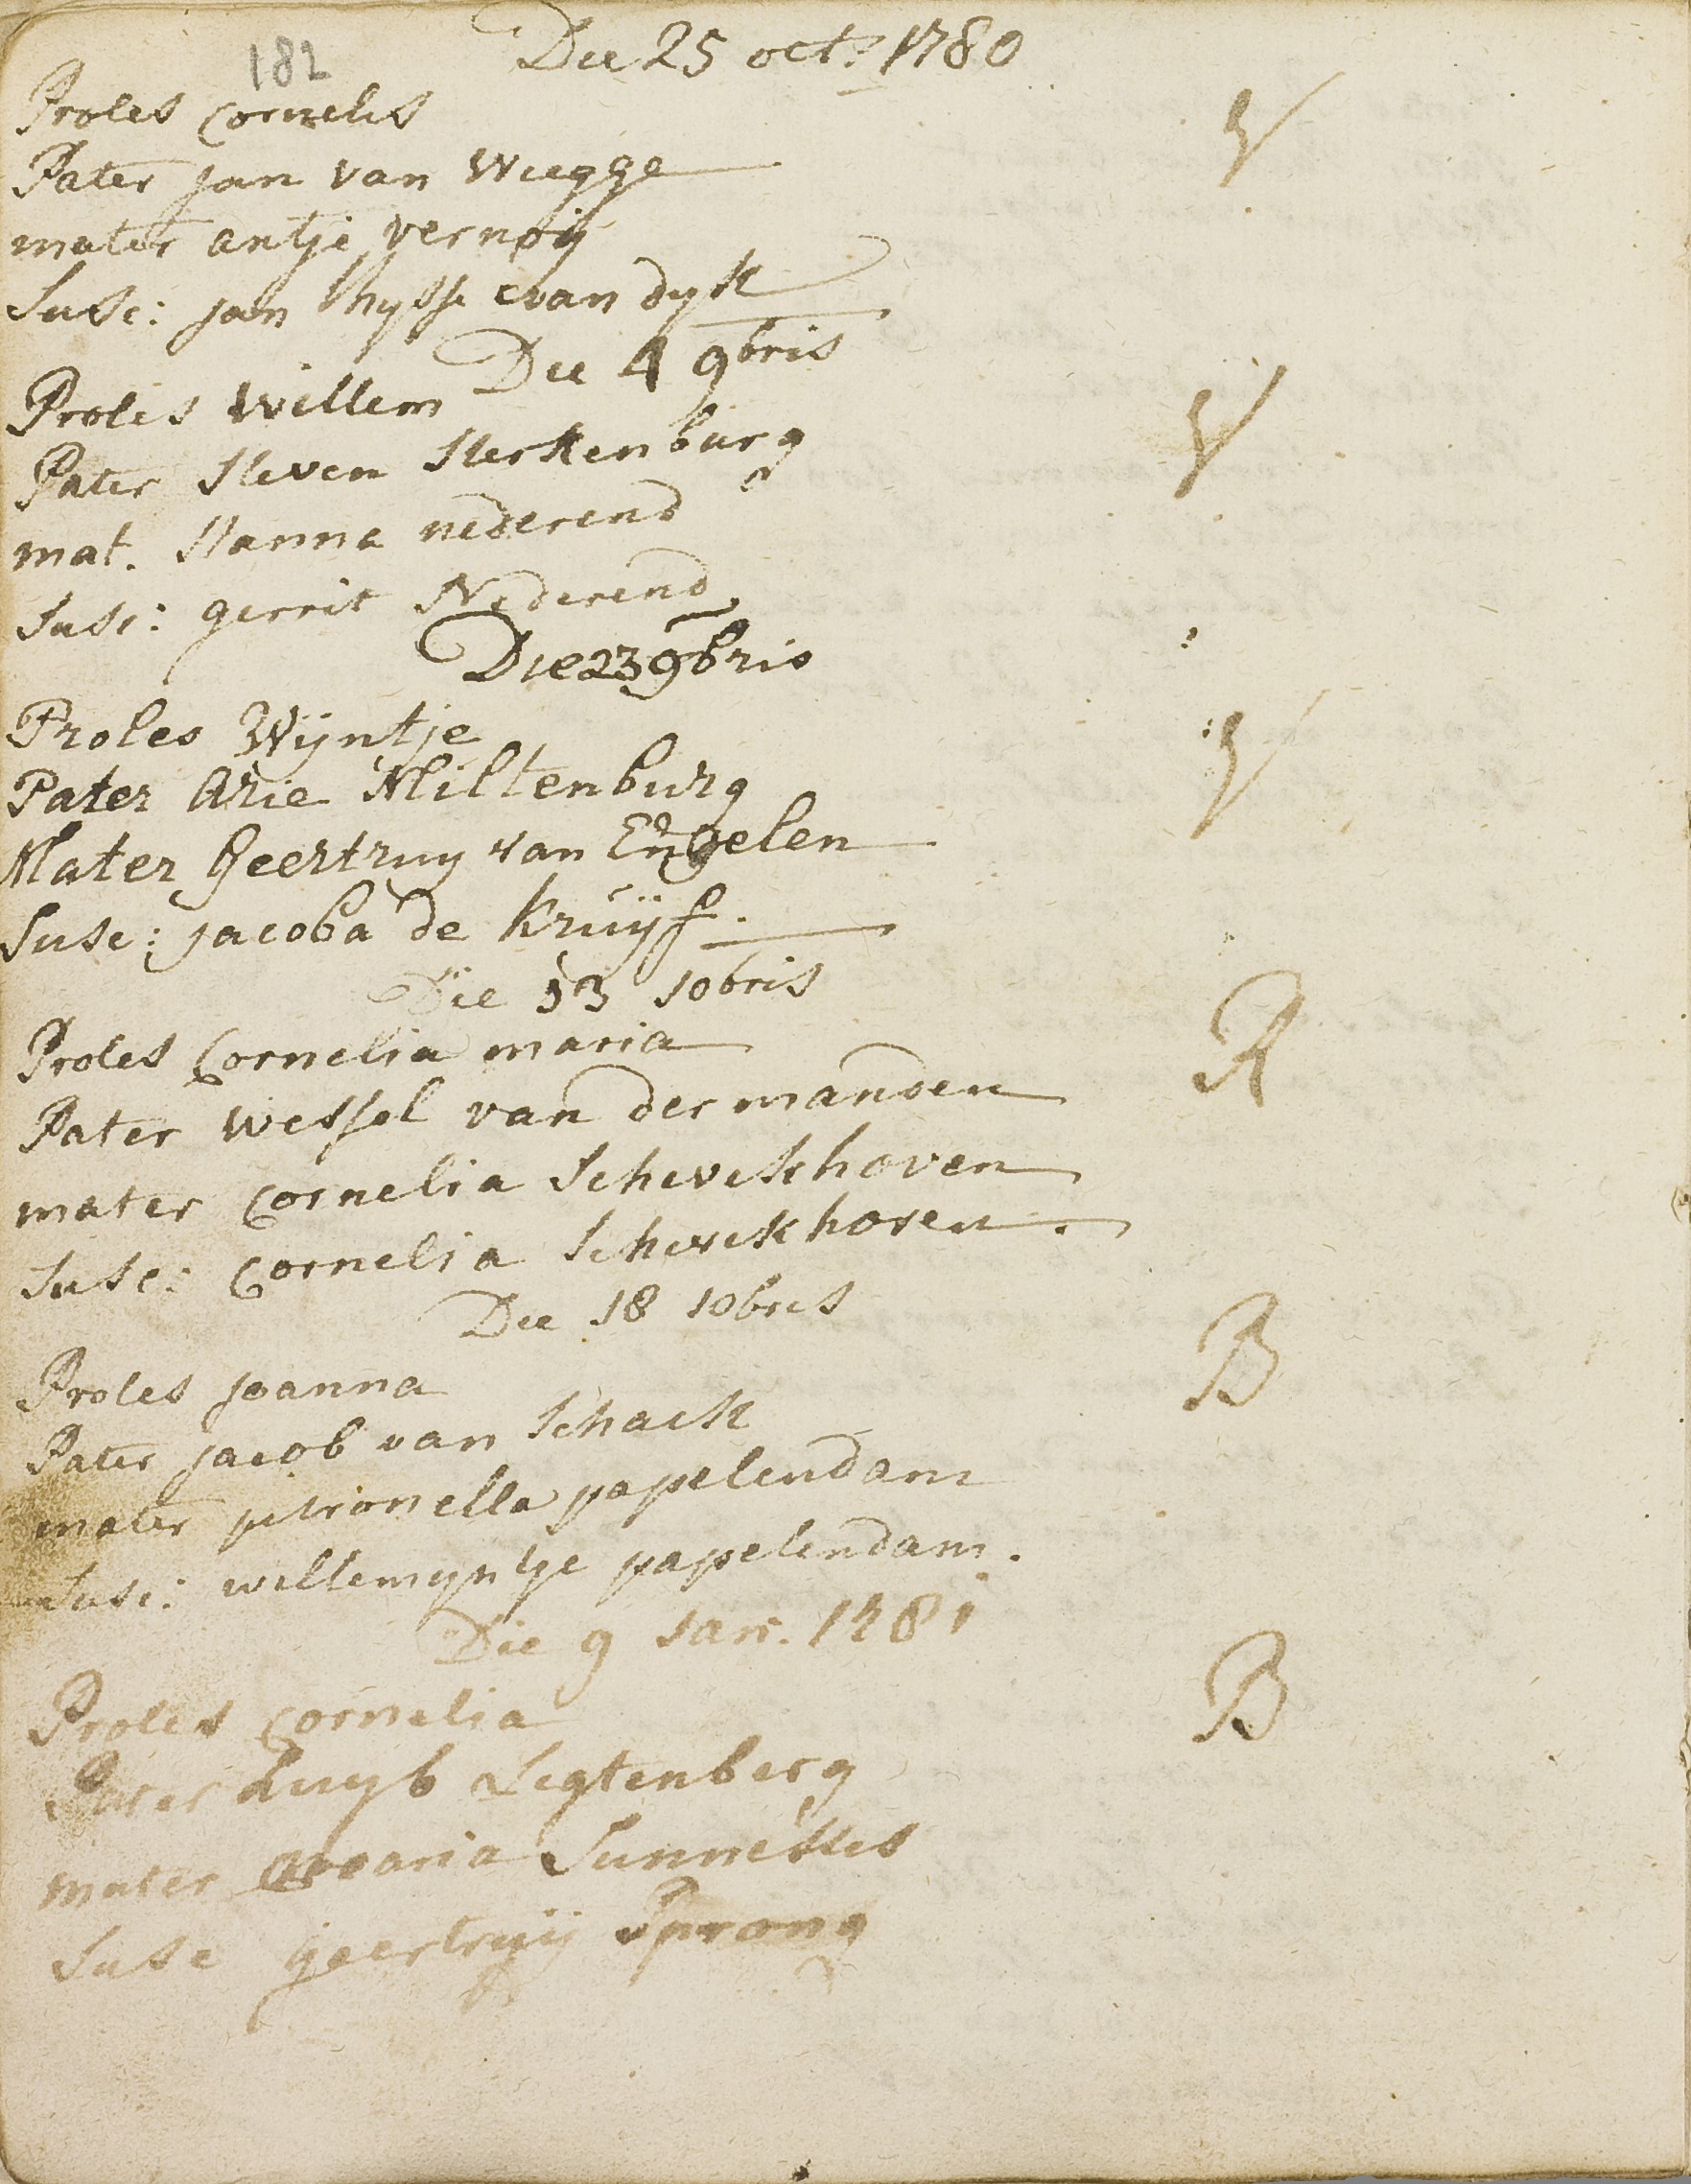 182
Die 25 oct: 1780
Proles Cornelis
V
Pater jan van Wiegge
mater antje vernoij
Susc: jan thysse van dyk
Die 4 9bris
Proles Willem
V
Pater Steven Sterkenburg
mat. Hanna nederend
Susc: gerrit Nederend
Die 23 9bris
Proles Wijntje
V
Pater Arie Miltenburg
Mater Geertruy van Engelen
Susc: jacoba de Kruijf.
Die 13 10bris
Proles Cornelia maria
R
Pater Wessel van der manden
mater Cornelia Scheveckhoven
Susc: Cornelia Scheveckhoven.
Die 18 10bris
B
Proles joanna
Pater jacob van Schaik
mater petronella papelendam
Susc: willemyntje papelendam.
Die 9 Jan. 1781
Proles Cornelia
B
Pater Huyb Legtenberg
mater Maria
Susc geertruij Sprong